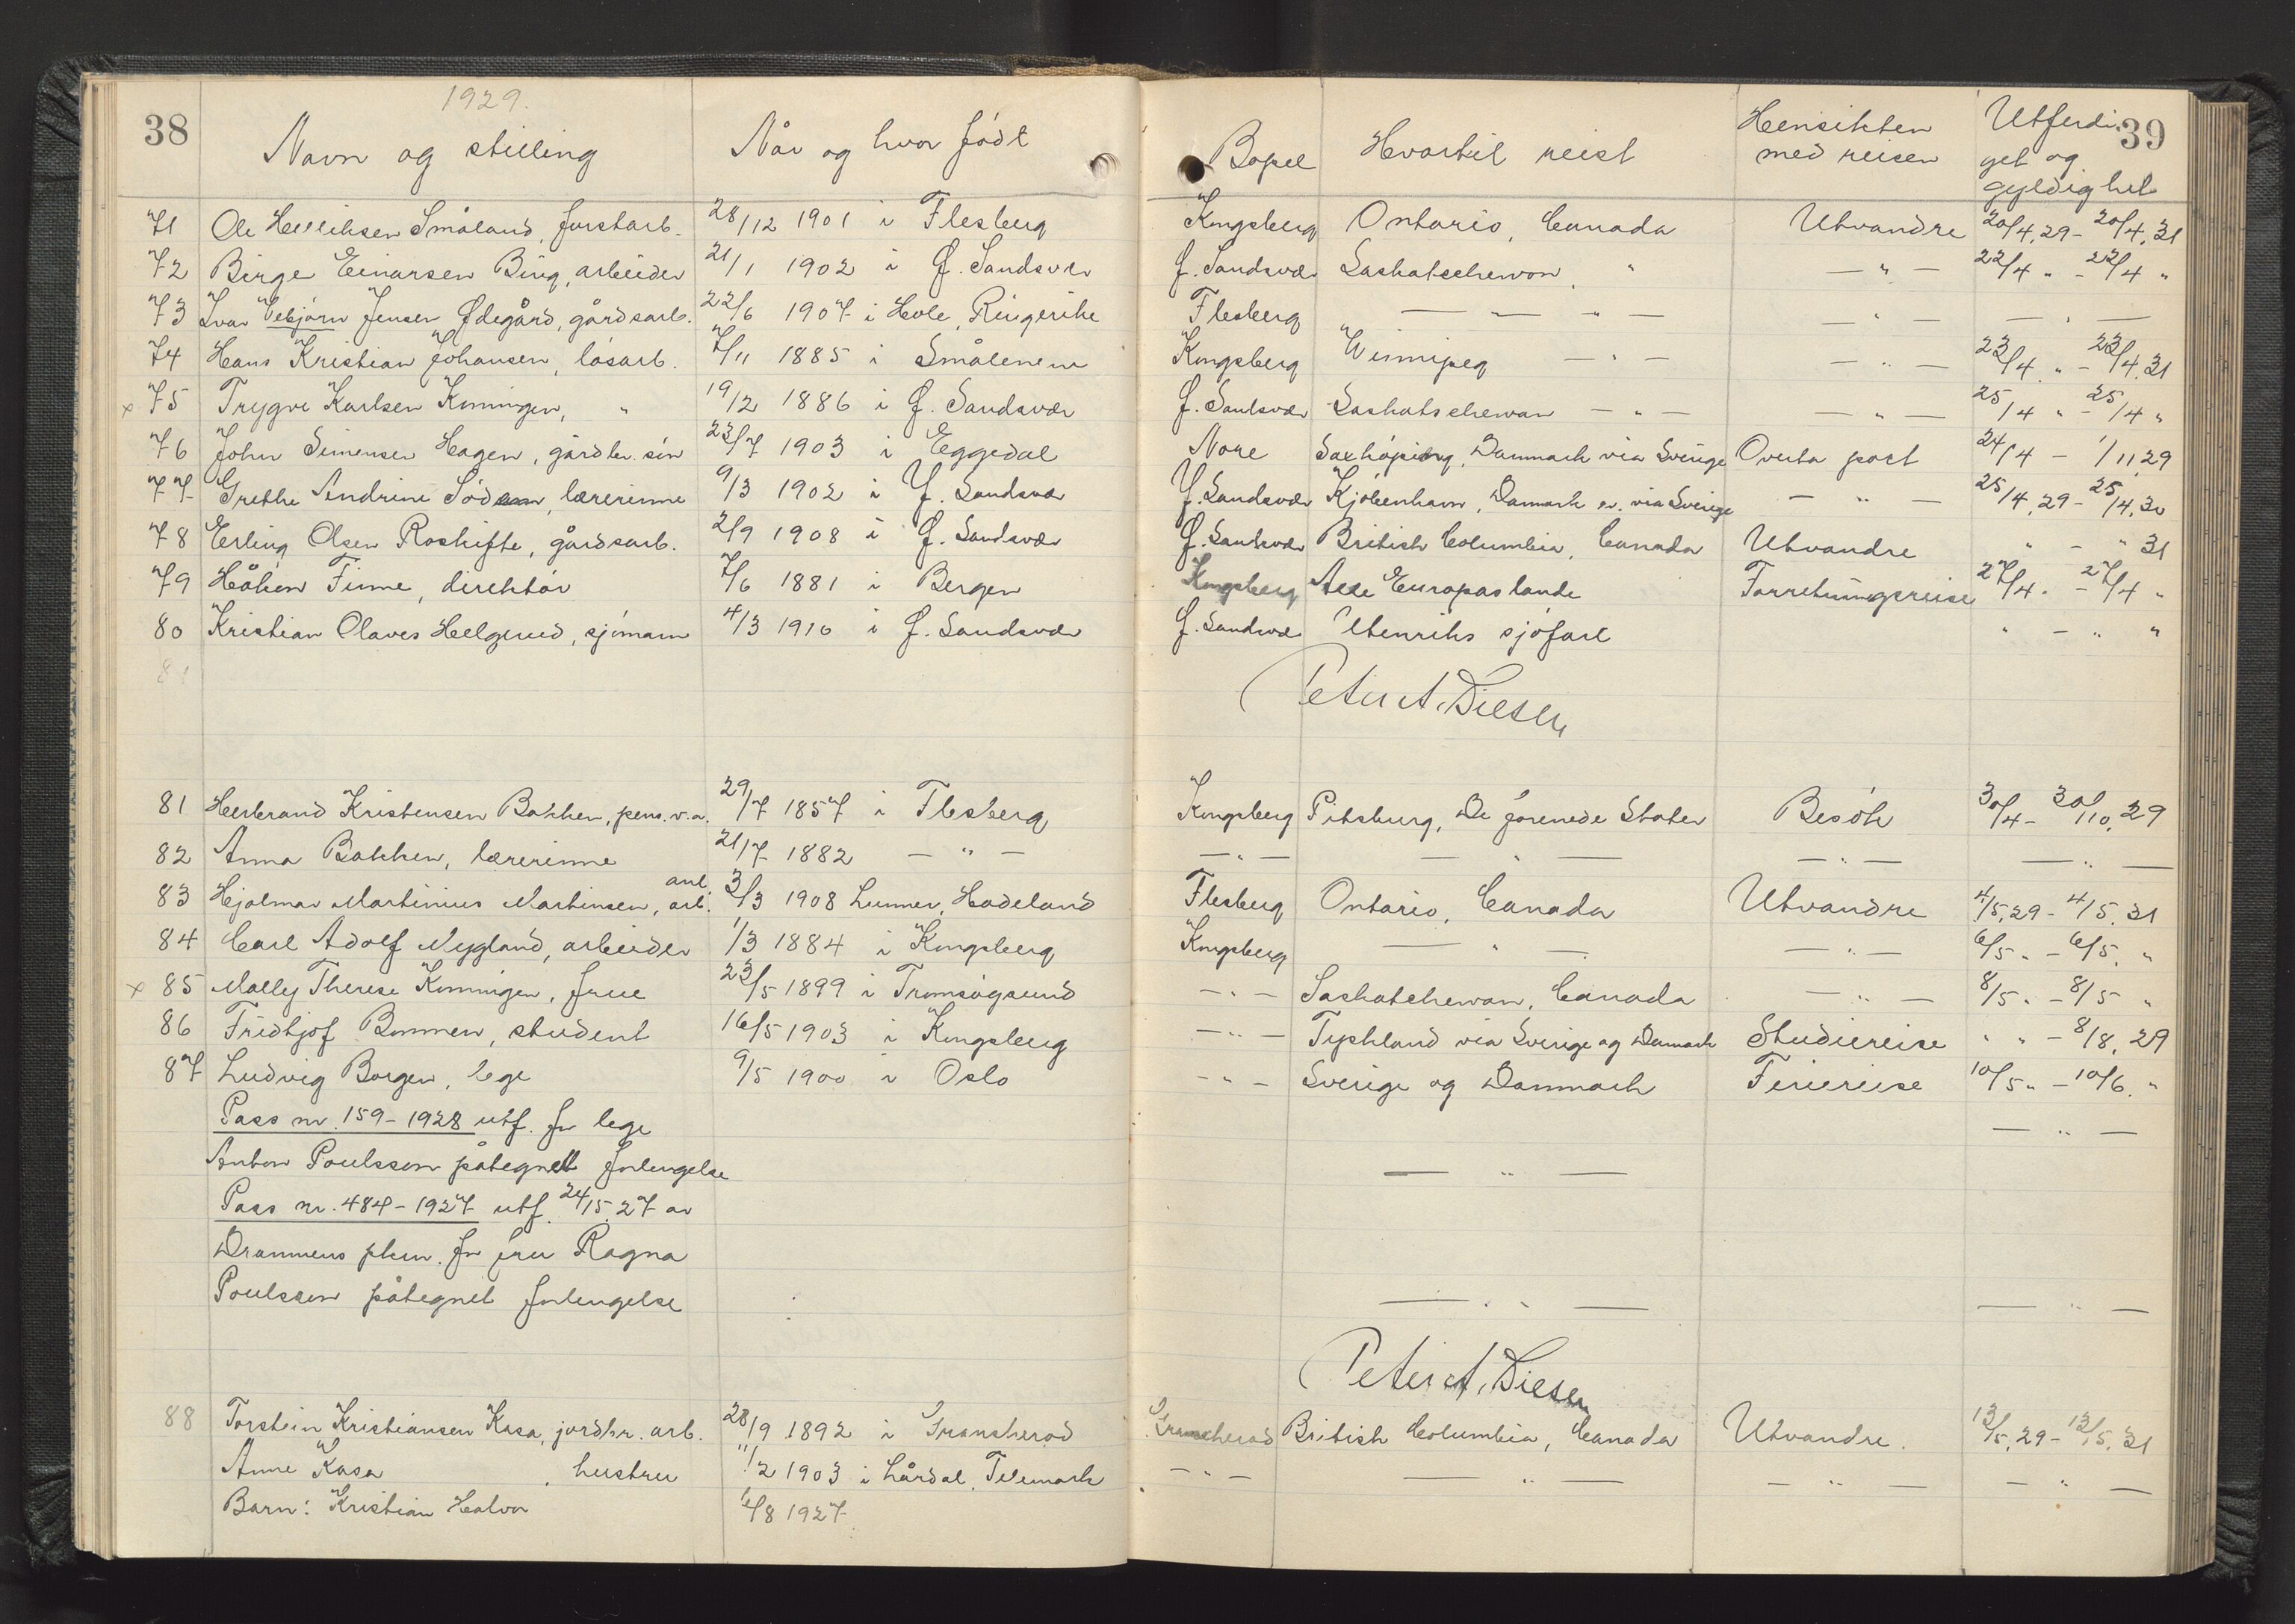 38
1929.
Navn og stilling Når og hvor født Bopel Hvortil reist Hensikten med reisen Utferdiget og gyldighet
39
71 Ole Helliksen Småland, forstarb. 28/12 1901 i Flesberg Kongsberg Ontario, Canada Utvandre 20/4.29 - 20/4.31
72 Birge Einarsen Bing, arbeider 21/1 1902 i Ø. Sandsvær Ø. Sandsvær Saskatschewan, " — " — 22/4 " - 22/4 "
73 Ivar Vebjørn Jensen Ødegård, gårdsarb. 22/6 1907 i Hole, Ringerike Flesberg — " — " — — " — — " —
74 Hans Kristian Johansen, løsarb. 7/11 1885 i Smålenene Kongsberg Winnipeg — " — — " — 23/4 " - 23/4.31
x 75 Trygve Karlsen Konningen, " 19/2 1886 i Ø. Sandsvær Ø. Sandsvær Saskatschewan — " — — " — 25/4 " - 25/4 "
76 John Simensen Hagen, gårdbr. søn 23/7 1903 i Eggedal Nore Saxkøping, Danmark via Sverige Overta post 24/4 - 1/11 29
77 Grethe Andrine , lærerinne 9/3 1902 i Y. Sandsvær Y. Sandsvær Kjøbenhavn, Danmark via Sverige — " — 25/4.29 - 25/4.30
78 Erling Olsen Roskifte, gårdsarb. 2/9 1908 i Ø. Sandsvær Ø. Sandsvær British Columbia, Canada Utvandre " - " 31
79 Håkon Finne, direktør 7/6 1881 i Bergen Kongsberg Alle Europas lande Forretningsreise 27/4 " - 27/4 "
80 Kristian Olaves Helgerud, sjømann 4/3 1910 i Ø. Sandsvær Ø. Sandsvær Utenriks sjøfart " - " "
81
Peter A. Diesen
81 Herbrand Kristensen Bakken, pens. v.a. 29/7 1857 i Flesberg Kongsberg Pitsburg, De forenede Stater Besøk 30/4 - 30/10.29
82 Anna Bakken, lærerinne 21/7 1882 — " — — " — — " — — " — — " —
83 Hjalmar Martinius Martinsen, anl. arb. 3/3 1908 Lunner, Hadeland Flesberg Ontario, Canada Utvandre 4/5.29 - 4/5.31
84 Carl Adolf Nygland, arbeider 1/3 1884 i Kongsberg Kongsberg — " — — " — 6/5 " - 6/5. "
x 85 Mally Therese Konningen, frue 23/5 1899 i Tromsøgsund — " — Saskatchewan, Canada — " — 8/5 " - 8/5 "
86 Fridtjof Bommen, student 16/5 1903 i Kongsberg — " — Tyskland via Sverige og Danmark Studiereise " " - 8/8.29
87 Ludvig Borgen, lege 9/5 1900 i Oslo — " — Sverige og Danmark Feriereise 10/5 " - 10/6. "
Pass nr. 159 - 1928 utf. for lege — " —
Anton Poulsson påtegnet forlengelse — " —
Pass nr. 484 - 1927 utf. 24/5.27 av
Drammens pkm. for fru Ragna
Poulsson påtegnet forlengelse — " — — " —
Peter A. Diesen
88 Torstein Kristiansen Kasa, jordbr. arb. 28/9 1892 i Gransherad Gransherad British Columbia, Canada Utvandre. 13/5.29 - 13/5.31
Anne Kasa, hustru 11/2 1903 i Lårdal, Telemark — " — — " — — " — — " —
Barn: Kristian Halvor 6/8 1927